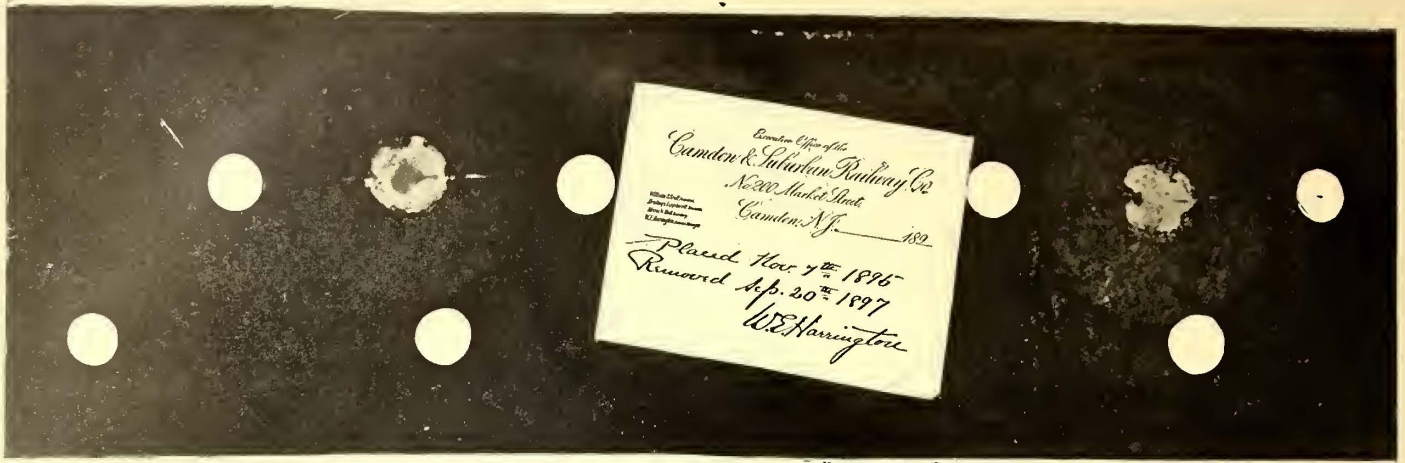 Executive Office of the
Camden & Suburban Railway Co.
No 200 Market Street,
Camden, N.J. 189
Placed Nov. 7th 1895
Removed Sep. 20th 1897
W.E. Harrington